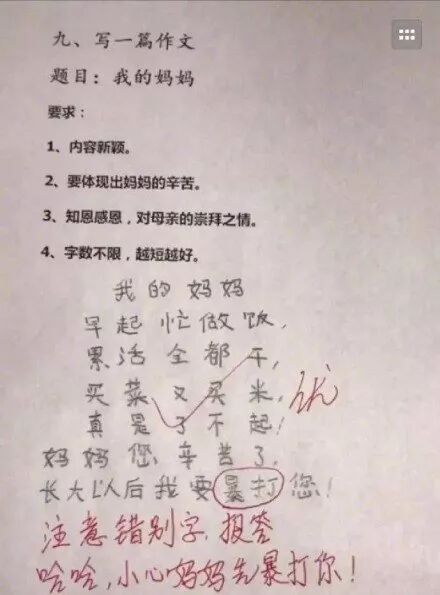 九、写一篇作文
题目：我的妈妈
要求：
1、内容新颖。
2、要体现出妈妈的辛苦。
3、知恩感恩，对母亲的崇拜之情。
4、字数不限，越短越好。
我的妈妈
早起忙做饭，
累活全都干，
买菜又买米，
真是了不起！
优
妈妈您辛苦了，
长大以后我要暴打您！
注意错别字，报答
哈哈，小心妈妈先暴打你！